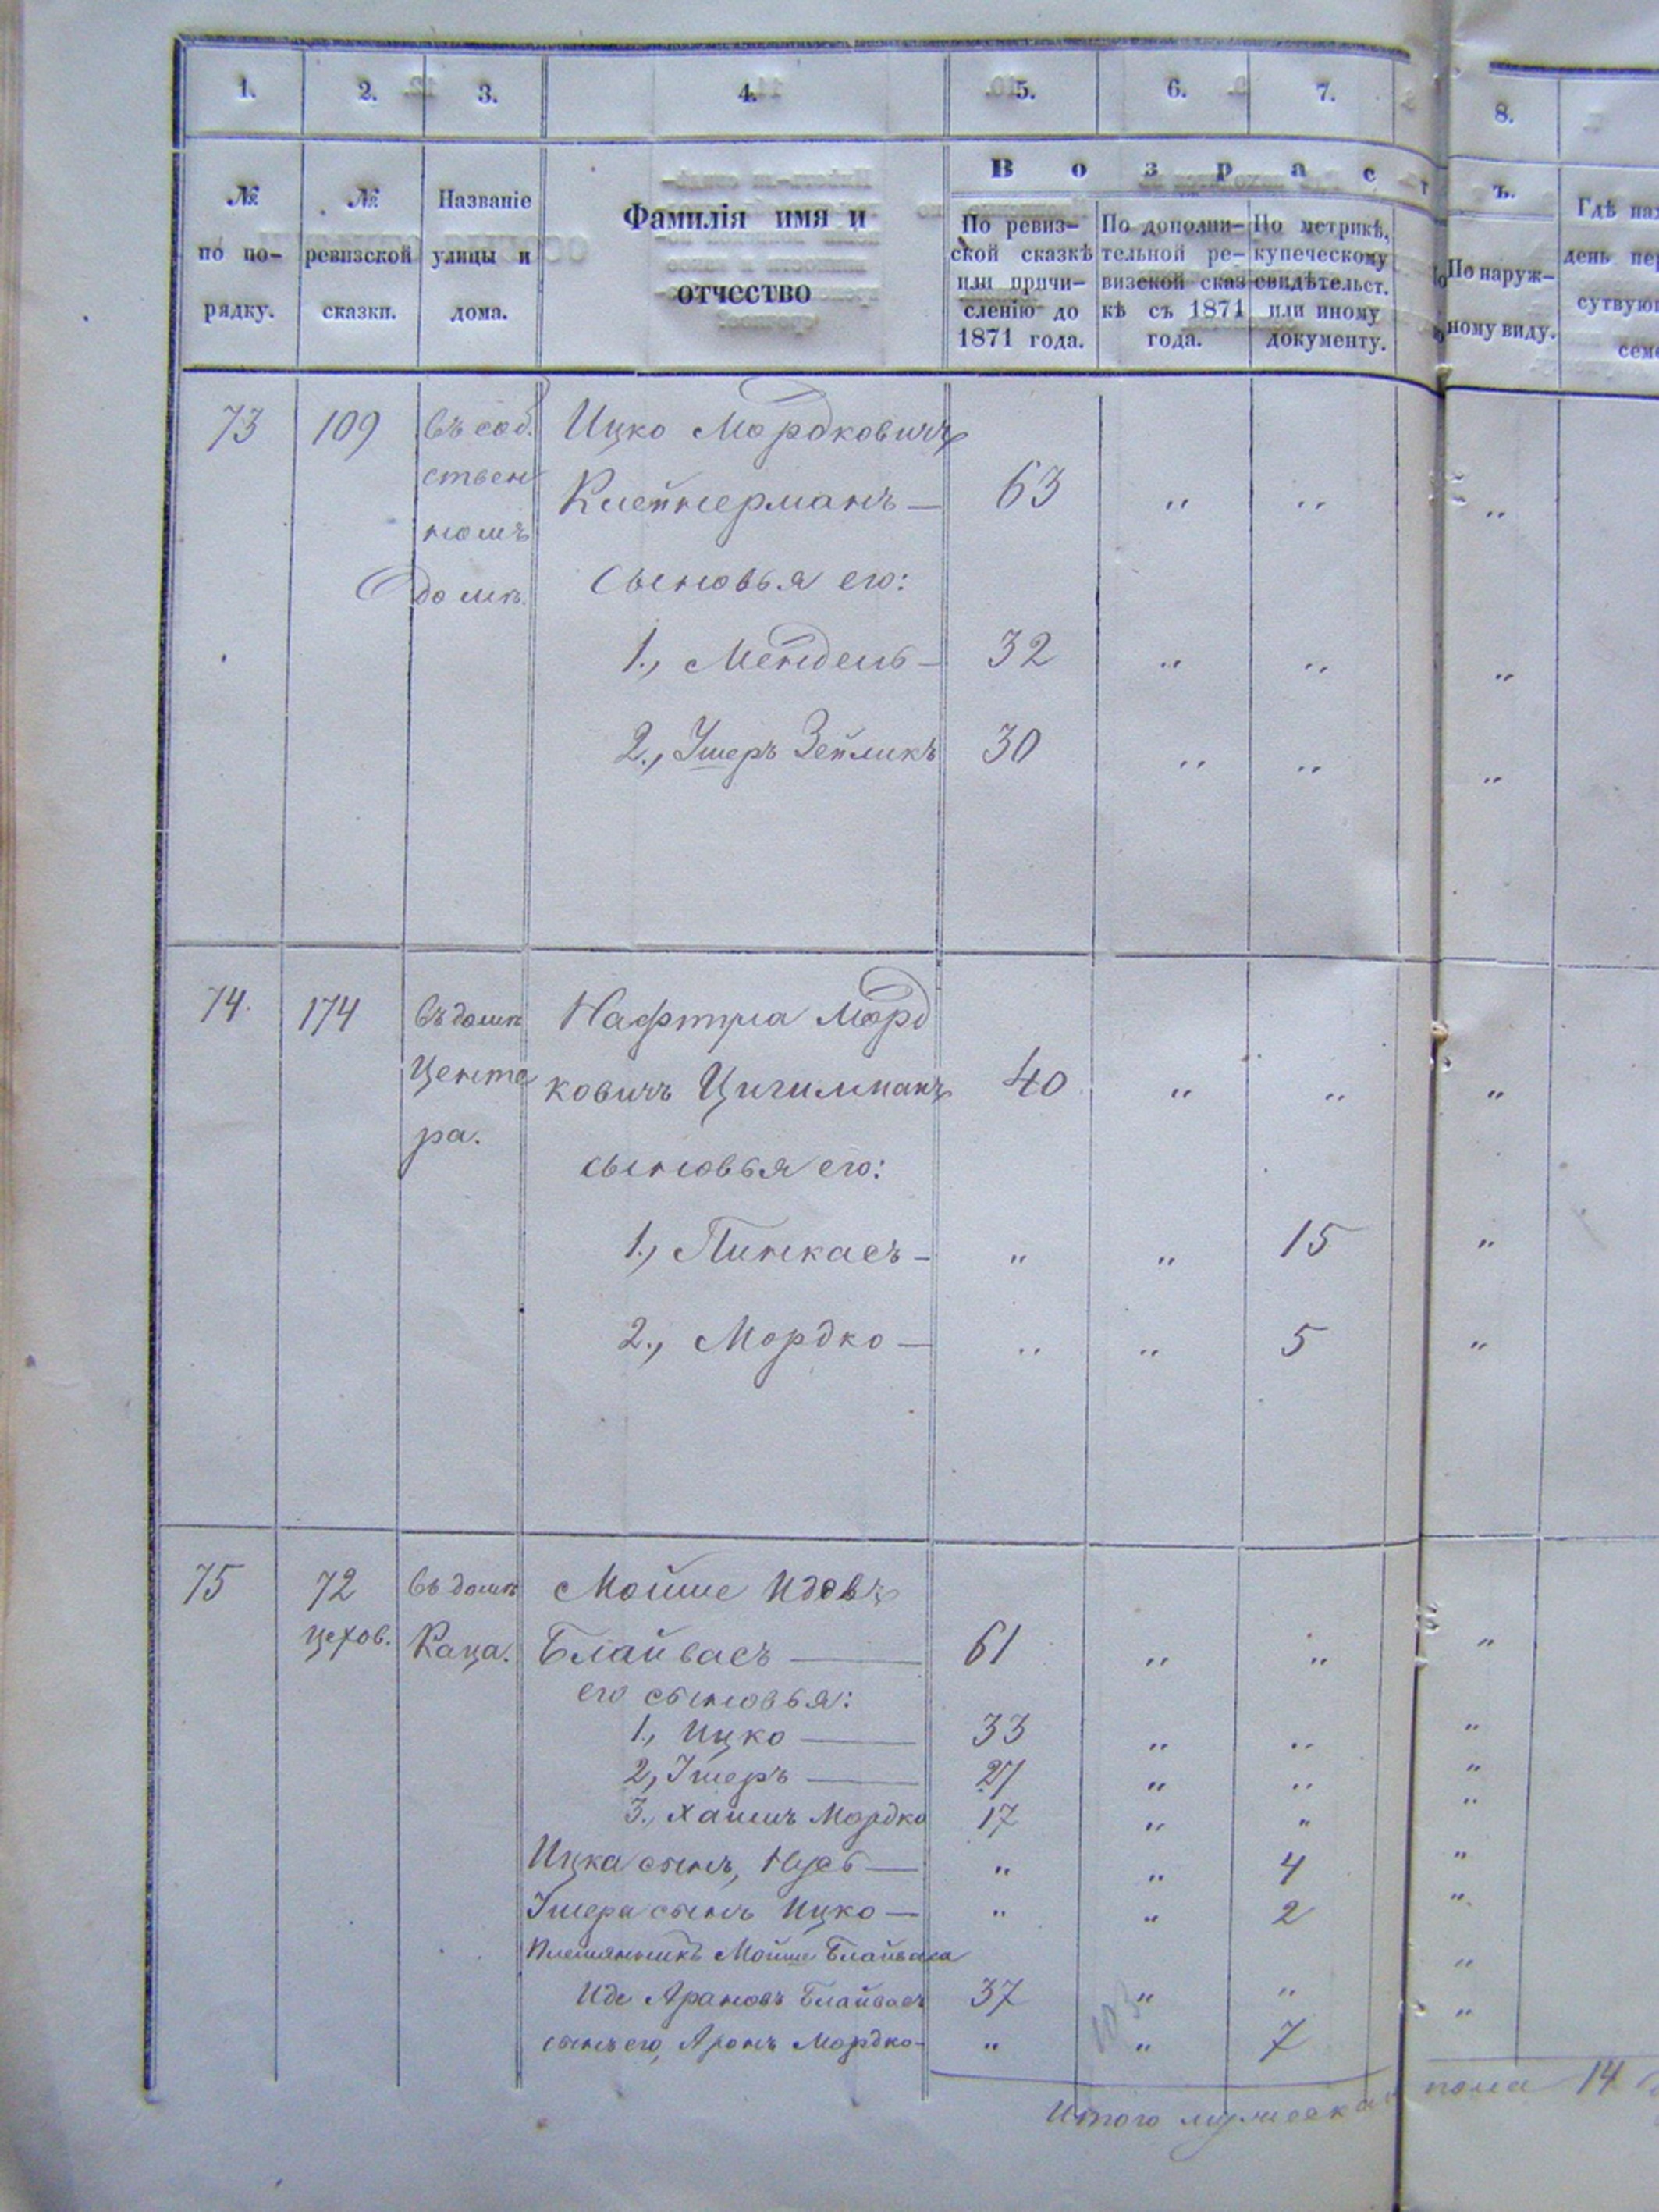 1. 2. 3. 4. 5. 6. 7. 8.
Возраст ъ.
№ по порядку.
№ ревизской сказки.
Названіе улицы и дома.
Фамилія имя и отчество
По ревиз-
ской сказкѣ
или причи-
сленію до
1871 года.
По дополни-
тельной ре-
визской сказ
кѣ съ 1871
года.
По метрикѣ,
купеческому
свидѣтельст.
или иному
документу.
По наруж-
ному виду.
Гдѣ
день
73 109 Въ соб. Ицко Мордковичъ
ствен Клейнерманъ — 63 " " "
номъ
домѣ. Сыновья его:
1., Мендель — 32 " " "
2., Ушеръ Зейликъ 30 " " "
74. 174 Въ домѣ Нафтула Морд
Центе ковичъ Цигилманъ 40 " " "
ра.
сыновья его:
1., Пинкасъ — " " 15 "
2., Мордко — " " 5 "
75 72 Въ домѣ Мойше Идовъ
цехов. Каца. Блайвасъ — 61 " " "
его сыновья:
1., Ицко — 33 " " "
2., Ушеръ — 21 " " "
3., Хаимъ Мордко 17 " " "
Ицка сынъ, Нусъ — " " 4 "
Ушера сынъ Ицко — " " 2 "
Племянникъ Мойше Блайваса "
Иде Арановъ Блайвасъ 37 " " "
сынъ его, Аронъ Мордко — " " 7
Итого мужескаго пола 14